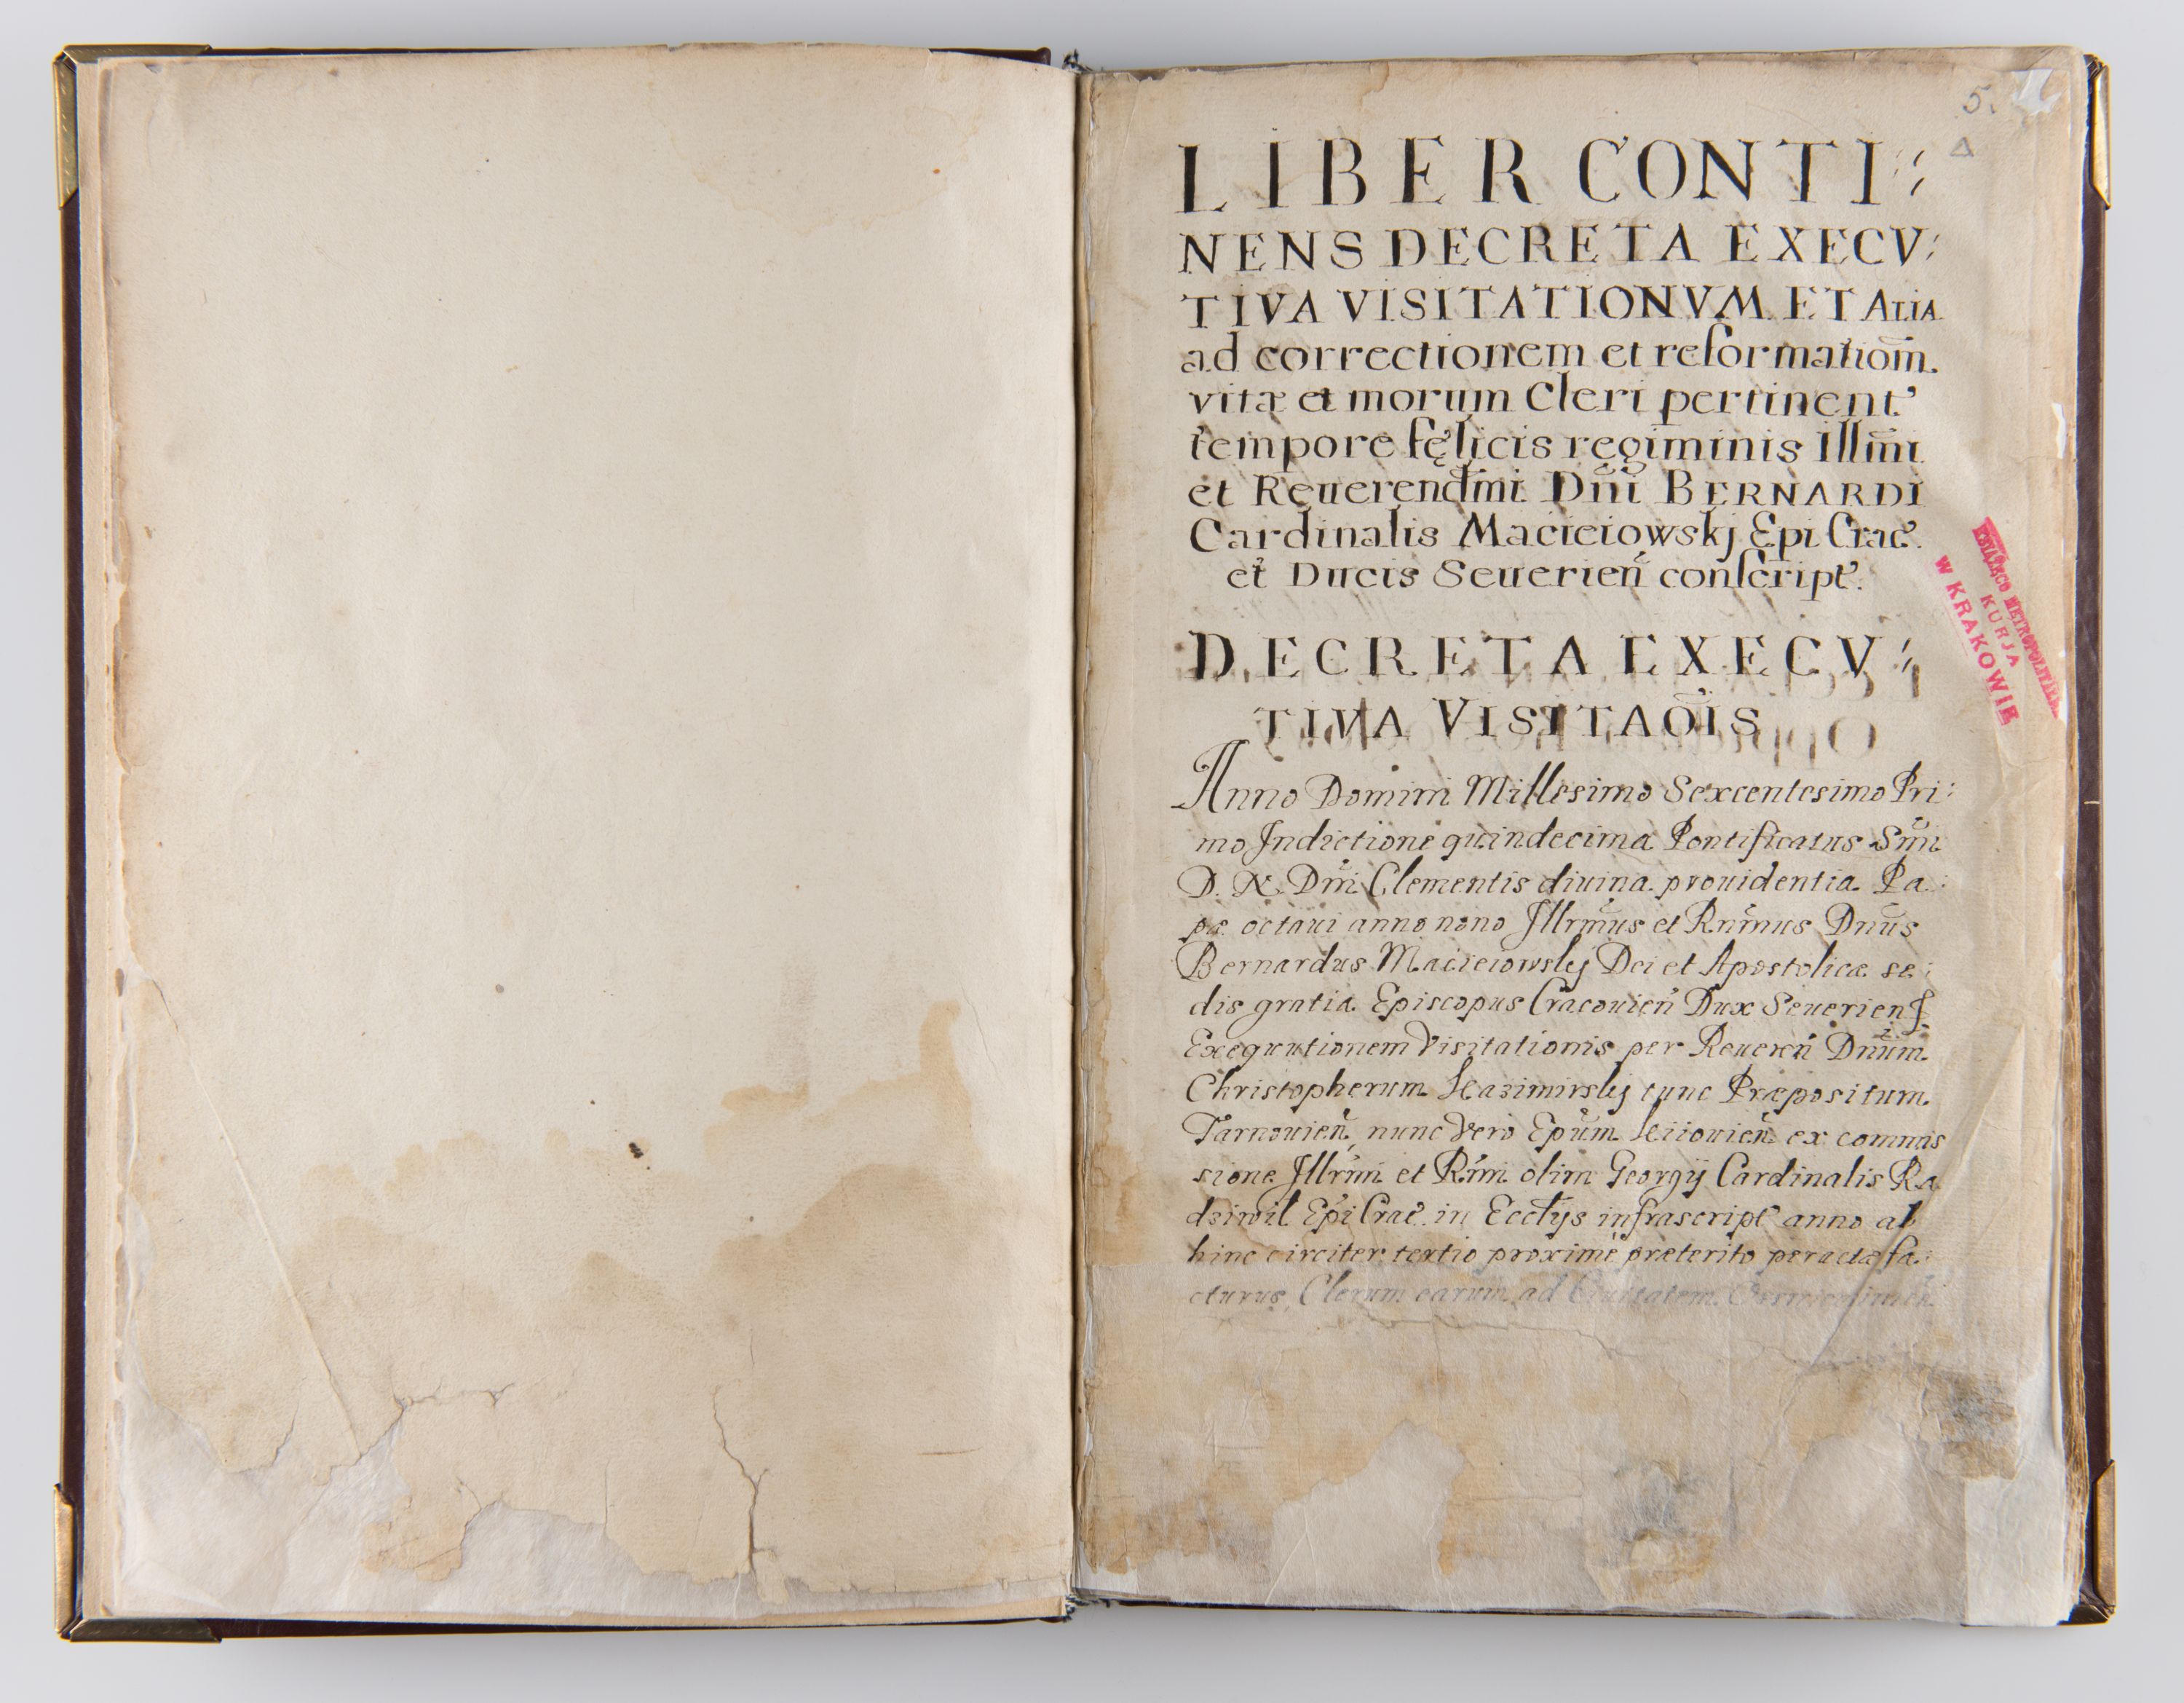 5.
LIBER CONTI:
NENS DECRETA EXECV:
TIVA VISITATIONVM ET ALIA
ad correctionem et reformatiom̄.
vitæ et morum Cleri pertinent'
tempore fęlicis regiminis Illm̄i
et Reuerendm̄i Dn̄i BERNARDI
Cardinalis Macieiowskj Epi Crac̄.
et Ducis Seuerien̄ conscript'.
DECRETA EXECV:
TIVA VISITAO̅IS
Anno Domini Millesimo Sexcentesimo Pri:
mo Indictione quindecima Pontificatus Sm̄i
D. N. Dn̄i Clementis diuina prouidentia Pa:
pæ octaui anno nono Illrm̄us et Rn̄mus Dnūs
Bernardus Macieiowskj Dei et Apostolicæ se:
dis gratia Episcopus Cracouien̄ Dux Seuerien̄
Exequutionem Visitationis per Reueren̄ Dnūm
Christopherum Kazimirskj tunc Præpositum
Tarnouien̄ nunc Vero Epūm Kiiouien̄ ex commis
sione Illrm̄i et Rm̄i olim Georgij Cardinalis Ra
dziwil Epi Crac̄ in Eccl̄ijs infrascript' anno ab
hinc circiter tertio proximè præterito peractæ fa:
cturus, Clerum earum ad
KSIĄŻĘCO METROPOLITALNA
KURJA
W KRAKOWIE